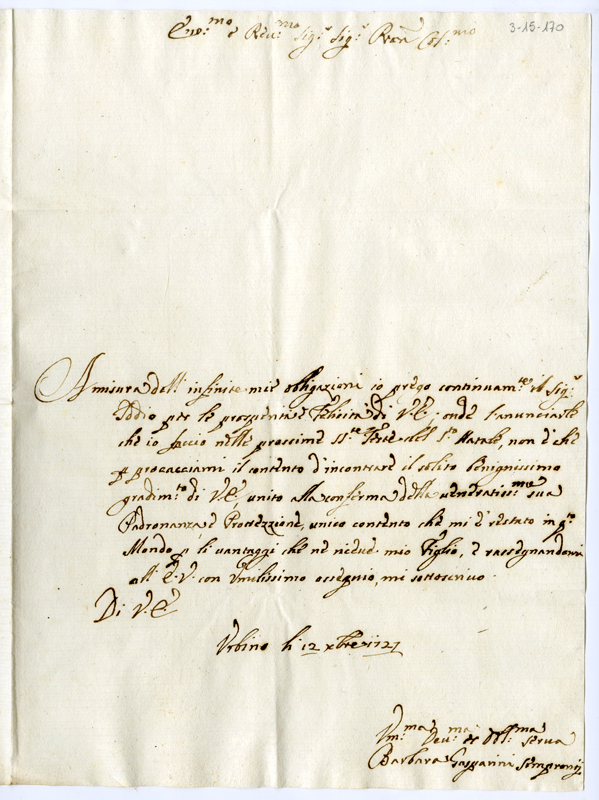 3-15-170
Em.mo e Reu.mo Sig.r Sig.r Pron Col.mo
A misura dell' infinite mie obligazioni io prego continuam.te il Sig.r
Iddio per le prosperità e Felicità di V.E. onde l'anunciarle
che io faccio nelle prossime SS.te Feste del S.o Natale, non è che
p procacciami il contento d'incontrare il solito benignissimo
gradim.to di V.E. unito alla conferma della ueneratiss.ma sua
Padronanza, e Protezzione, unico contento che mi è restato in q.to
Mondo p li uantaggi che ne riceue mio Figlio, e rassegnandomi
all' E.V. con Vmilissimo ossequio, mi sottoscriuo.
Di V.E.
Vrbino li 12 xbre 1727
Vm.ma Deu.ma et Obl.ma Serua
Barbara Gasparini Sempronij